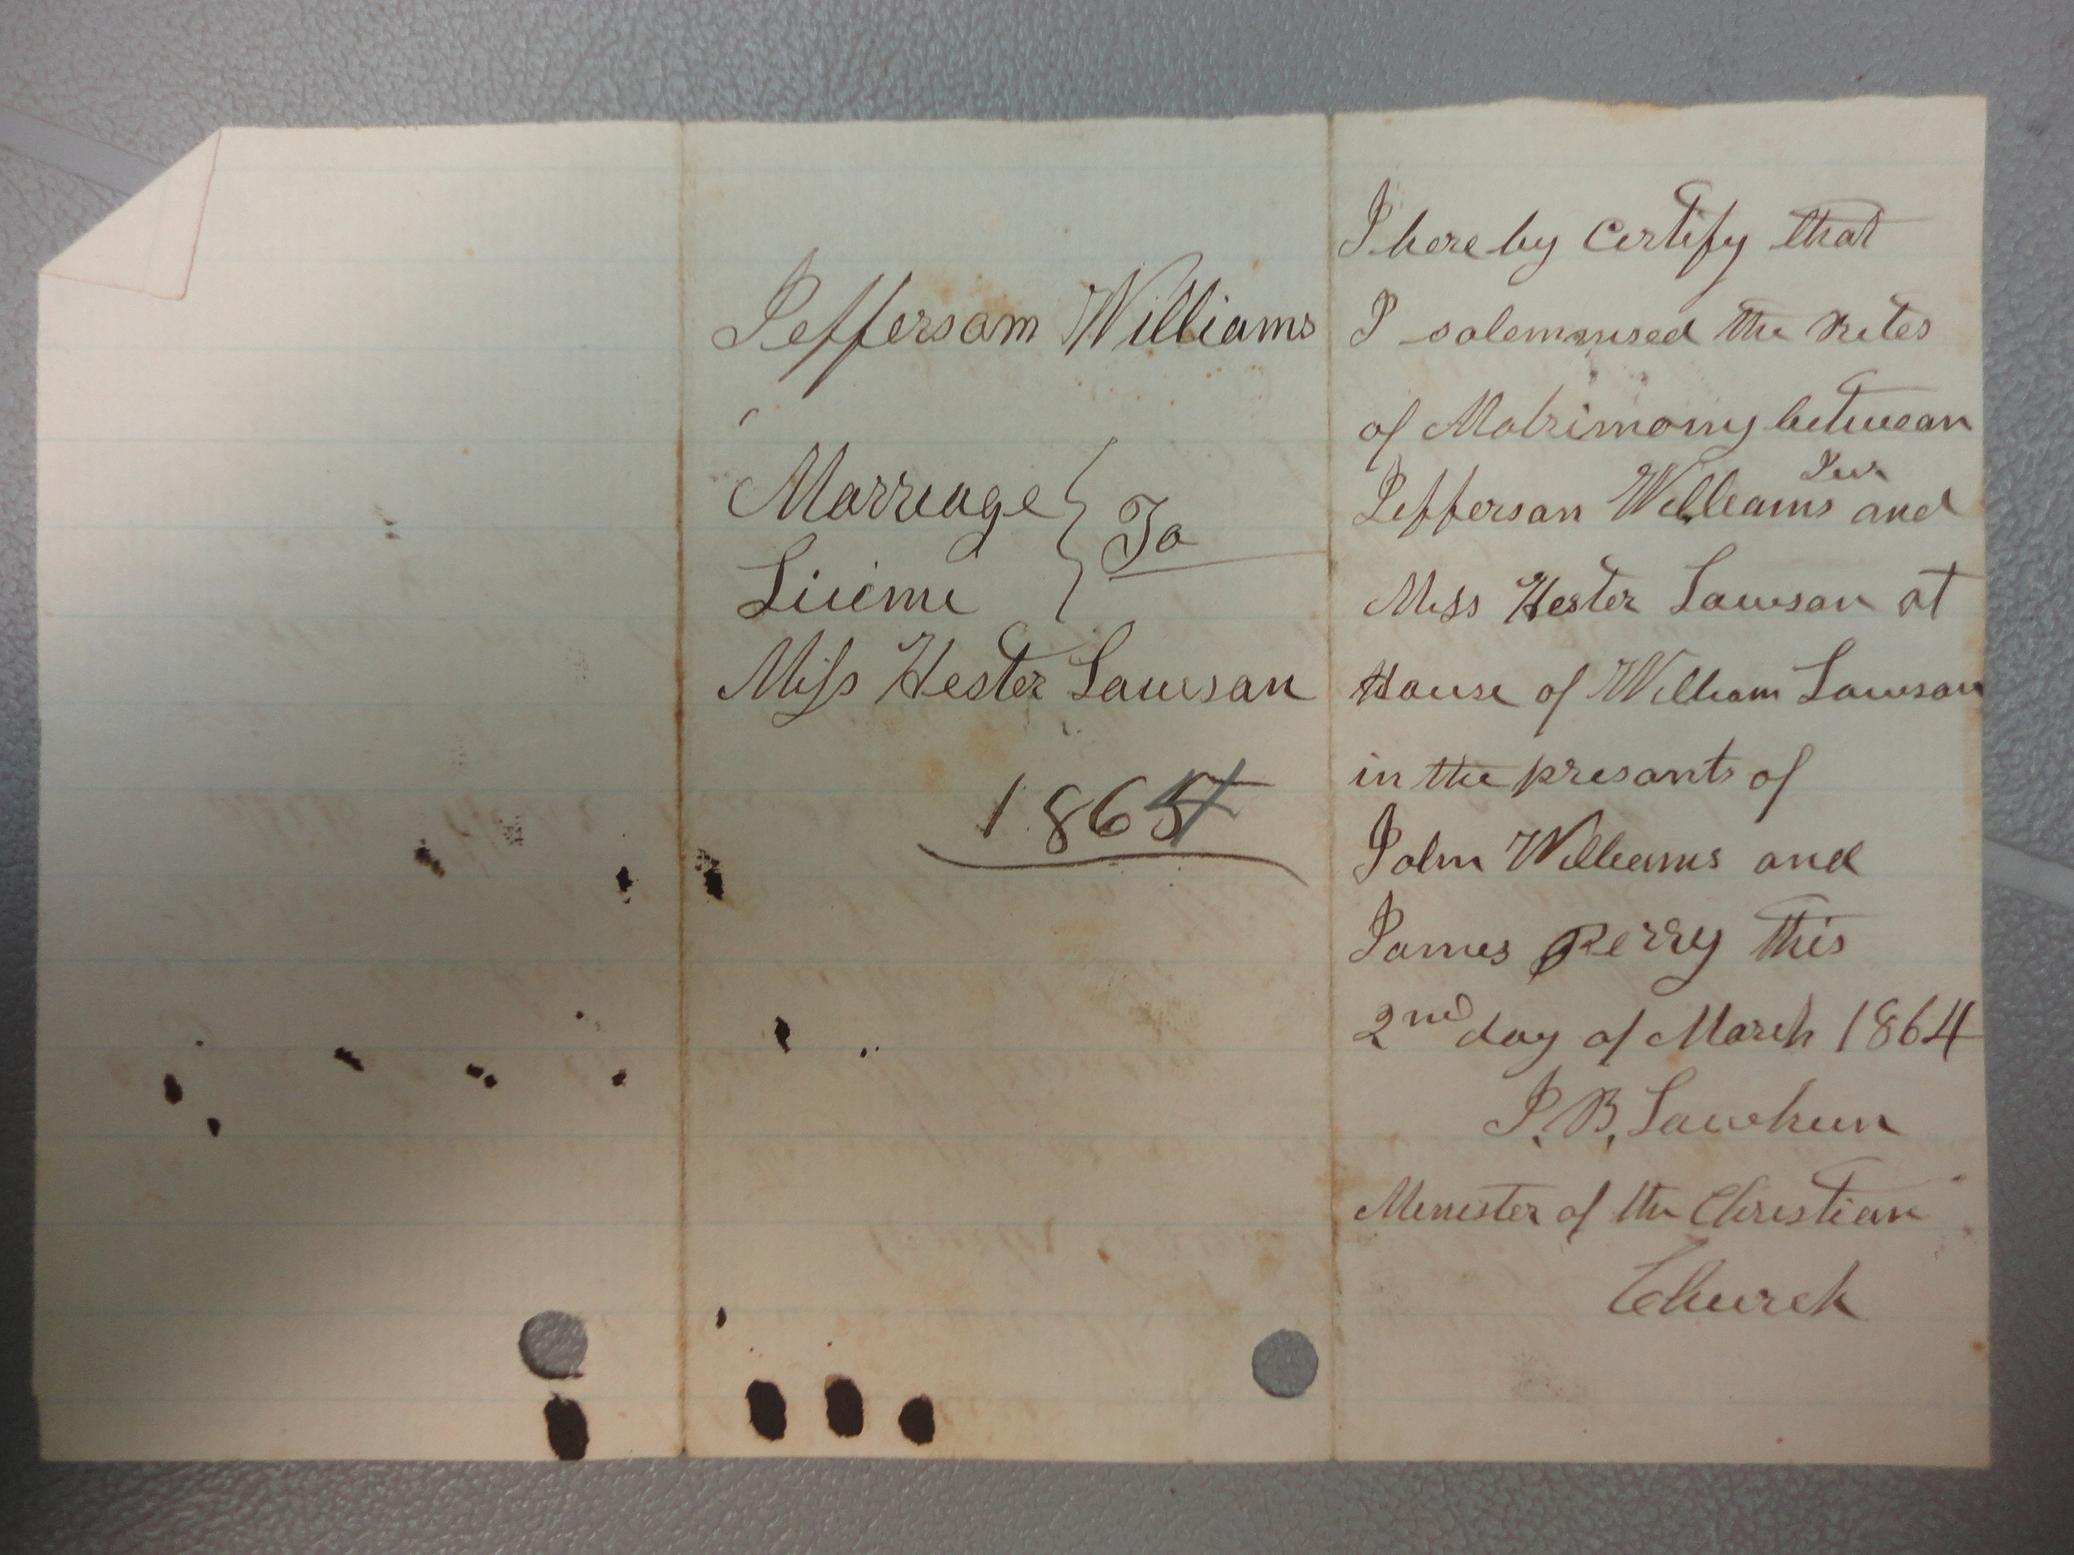 Jefferson Williams
Marriage } To
Licens
Miss Hester Lawson
1864
I hereby certify that
I solemnised the Rites
of Matrimony between
Jefferson Williams Jur and
Miss Hester Lawson at
House of William Lawson
in the presants of
John Williams and
James Perry this
2nd day of March 1864
J. B. Lawhun
Menester of the Christian
Church